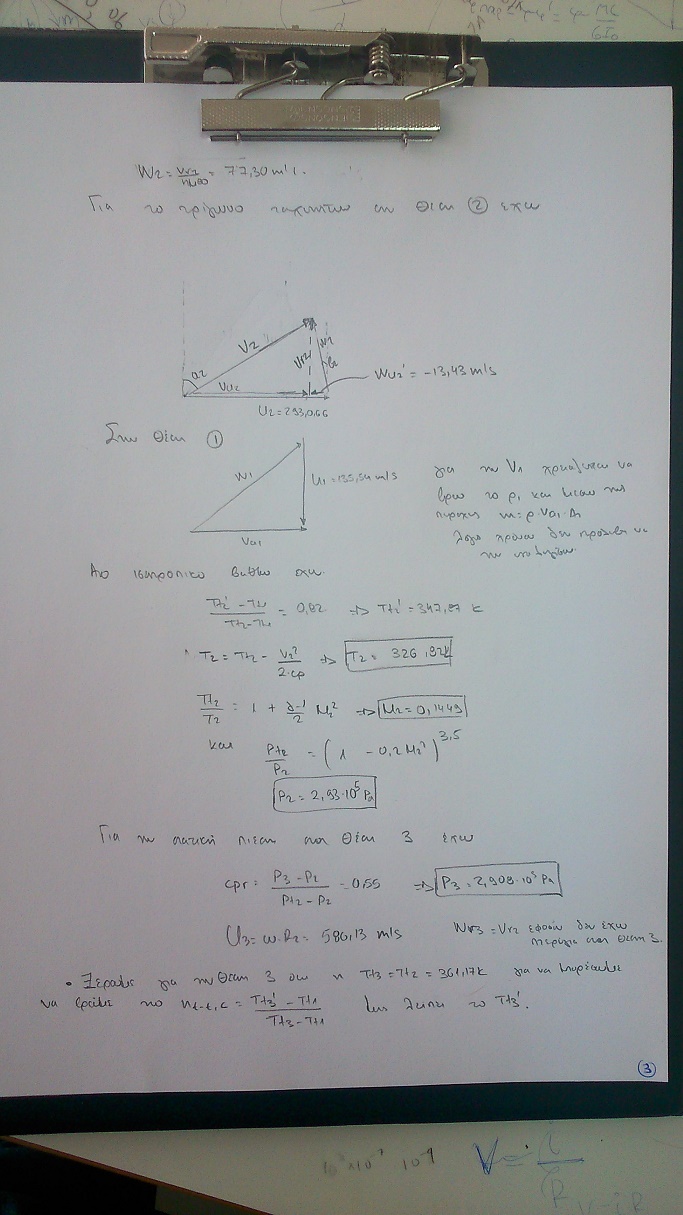 W2 = Vr2 / ημβ2 = 77,30 m/s.
Για το τρίγωνο ταχυτήτων στη θέση ② έχω
α2
V2
Vr2
W2
β2
Vu2
Wu2' = -13,43 m/s
U2 = 293,066
Στην θέση ①
W1
U1 = 135,54 m/s
Va1
για την V1 χρειάζεται να
βρω το ρ1 και μέσω της
παροχης m = ρ·Va1·A1
λόγο χρόνου δεν πρόλαβα να
την υπολογίσω.
Απο ισεντροπικο βαθμο εχω.
Tt2' - Tt1 / Tt2 - Tt1 = 0,82 ⇒ Tt2' = 347,87 K
T2 = Tt2 - V2² / 2·cp ⇒ T2 = 326,92K
Tt2 / T2 = 1 + γ-1 / 2 M2² ⇒ M2 = 0,1449
και Pt2 / P2 = (1 - 0,2 M2²)^3,5
P2 = 2,93·10⁵ Pa
Για την στατική πιεση στη θέση 3 έχω
cpr = P3 - P2 / Pt2 - P2 = 0,55 ⇒ P3 = 2,908·10⁵ Pa
U3 = ω·R2 = 586,13 m/s
Wr3 = Vr2 εφόσον δεν έχω
πτερύγια στη θεση 3.
• Ξέρουμε για την θεση 3 οτι η Tt3 = Tt2 = 361,17K για να μπορέσουμε
να βρούμε το ηt-t,c = Tt3' - Tt1 / Tt3 - Tt1 μας λειπει το Tt3'.
③
V = i / R
V = i R